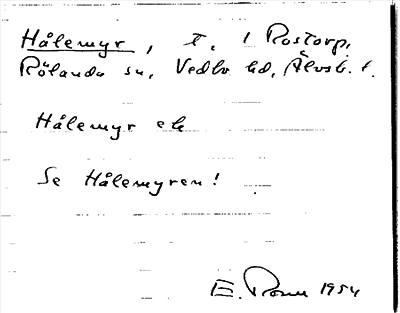 Hålemyr, t. 1 Rostorp,
Rölanda sn, Vedbo hd, Älvsb. l.
Hålemyr ek
Se Hålemyren!
E. 1954